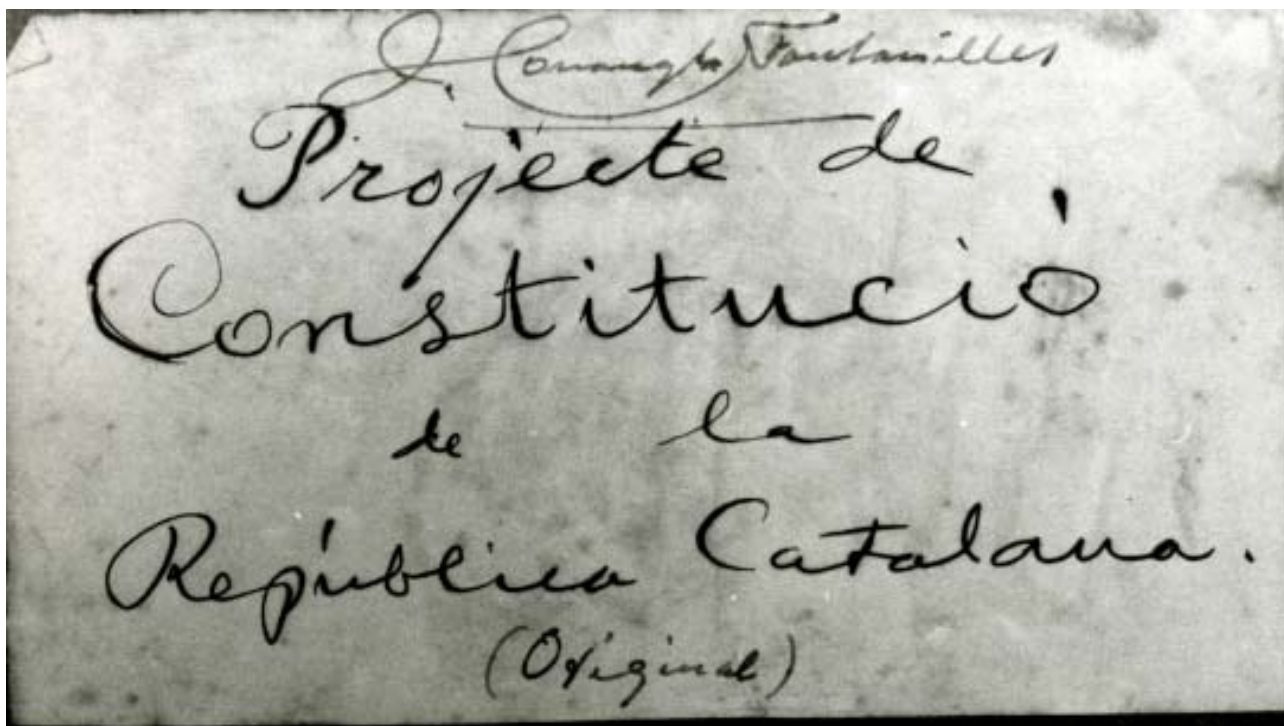 J. Conangla Fontanilles
Projecte de
Constitució
de la
República Catalana.
(Original)